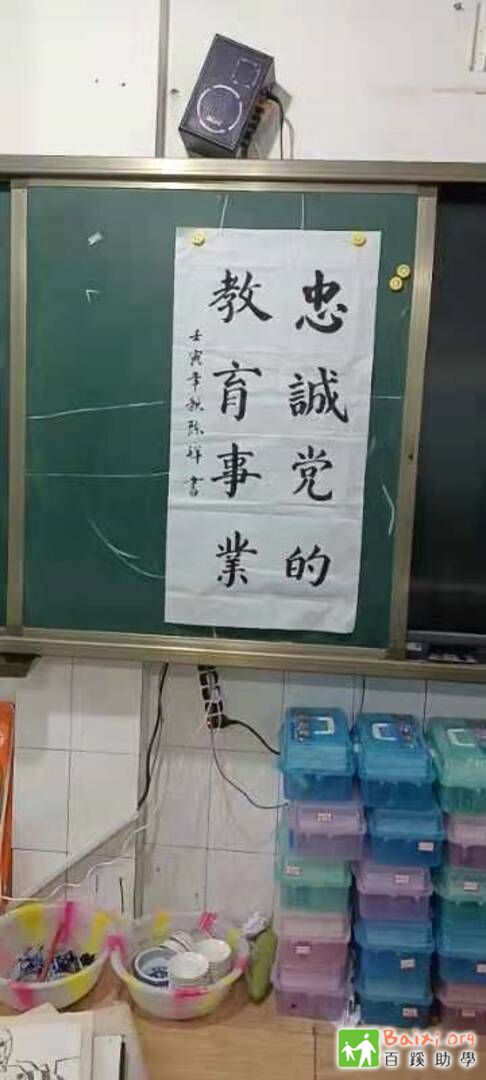 忠誠党的
教育事業
壬寅年秋陈祥書
Baixi.org
百蹊助學